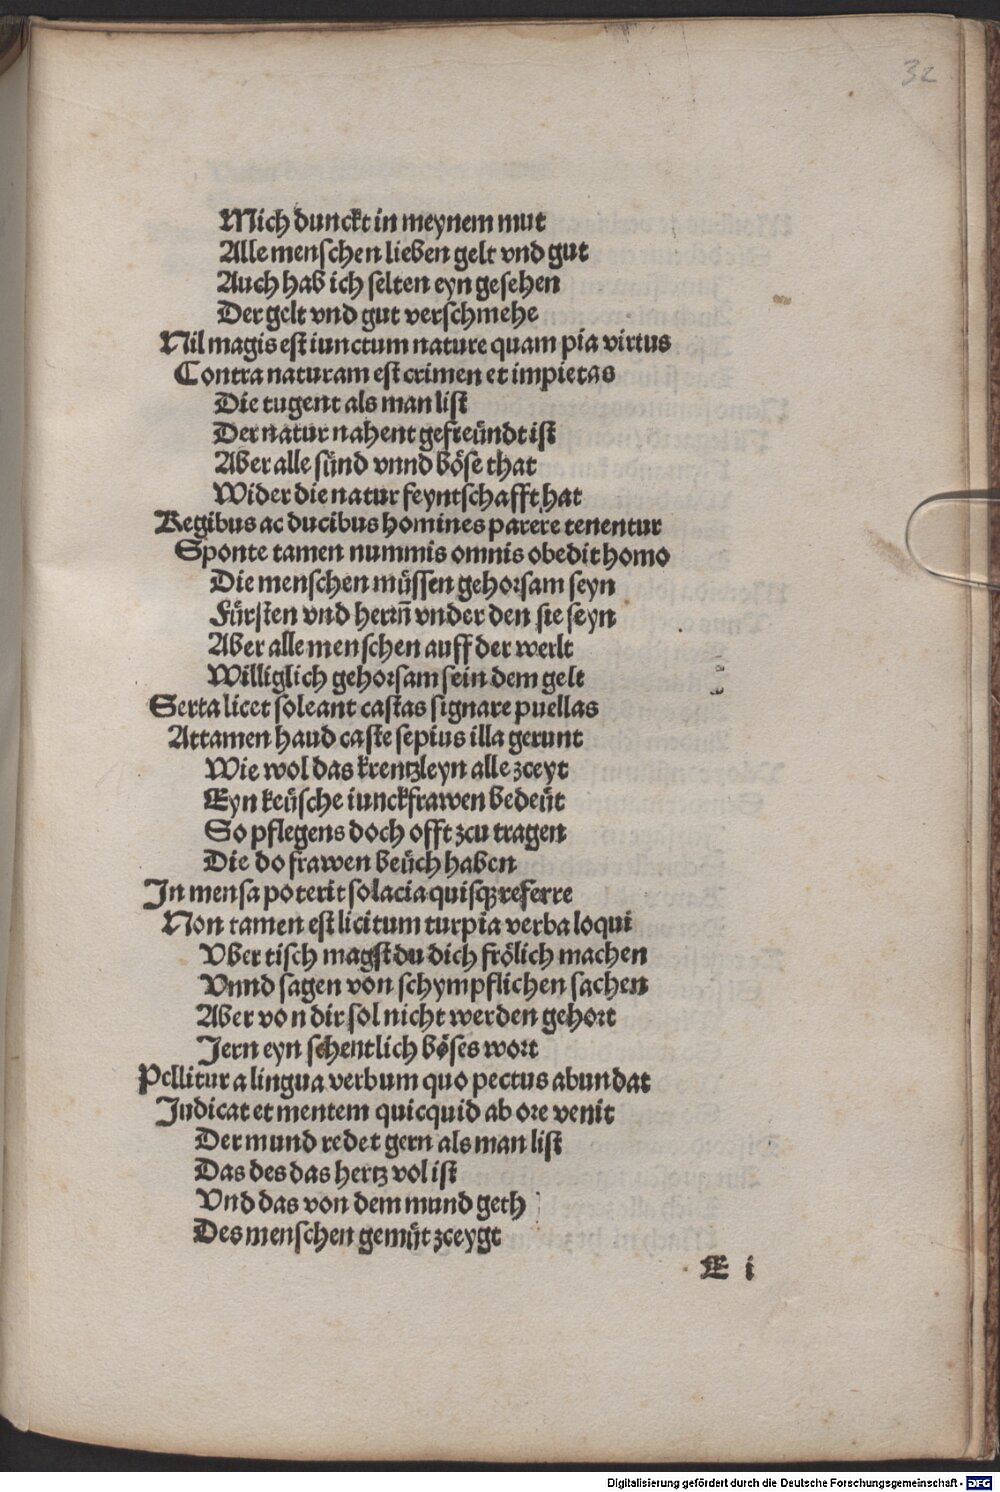 32
Mich dunckt in meynem mut
Alle menschen lieben gelt vnd gut
Auch hab ich selten eyn gesehen
Der gelt vnd gut verschmehe
Nil magis est iunctum nature quam pia virtus
Contra naturam est crimen et impietas
Die tugent als man list
Der natur nahent gefreündt ist
Aber alle sünd vnnd böse that
Wider die natur feyntschafft hat
Regibus ac ducibus homines parere tenentur
Sponte tamen nummis omnis obedit homo
Die menschen müssen gehorsam seyn
Fürsten vnd herrn̄ vnder den sie seyn
Aber alle menschen auff der werlt
Williglich gehorsam sein dem gelt
Serta licet soleant castas signare puellas
Attamen haud caste sepius illa gerunt
Wie wol das krentzleyn alle zceyt
Eyn keüsche iunckfrawen bedeüt
So pflegens doch offt zcu tragen
Die do frawen beüch haben
In mensa poterit solacia quisqꝫ referre
Non tamen est licitum turpia verba loqui
Vber tisch magst du dich frölich machen
Vnnd sagen von schympflichen sachen
Aber von dir sol nicht werden gehort
Jern eyn schentlich böses wort
Pellitur a lingua verbum quo pectus abundat
Indicat et mentem quicquid ab ore venit
Der mund redet gern als man list
Das des das hertz vol ist
Vnd das von dem mund geth
Des menschen gemüt zceygt
E i
Digitalisierung gefördert durch die Deutsche Forschungsgemeinschaft - DFG